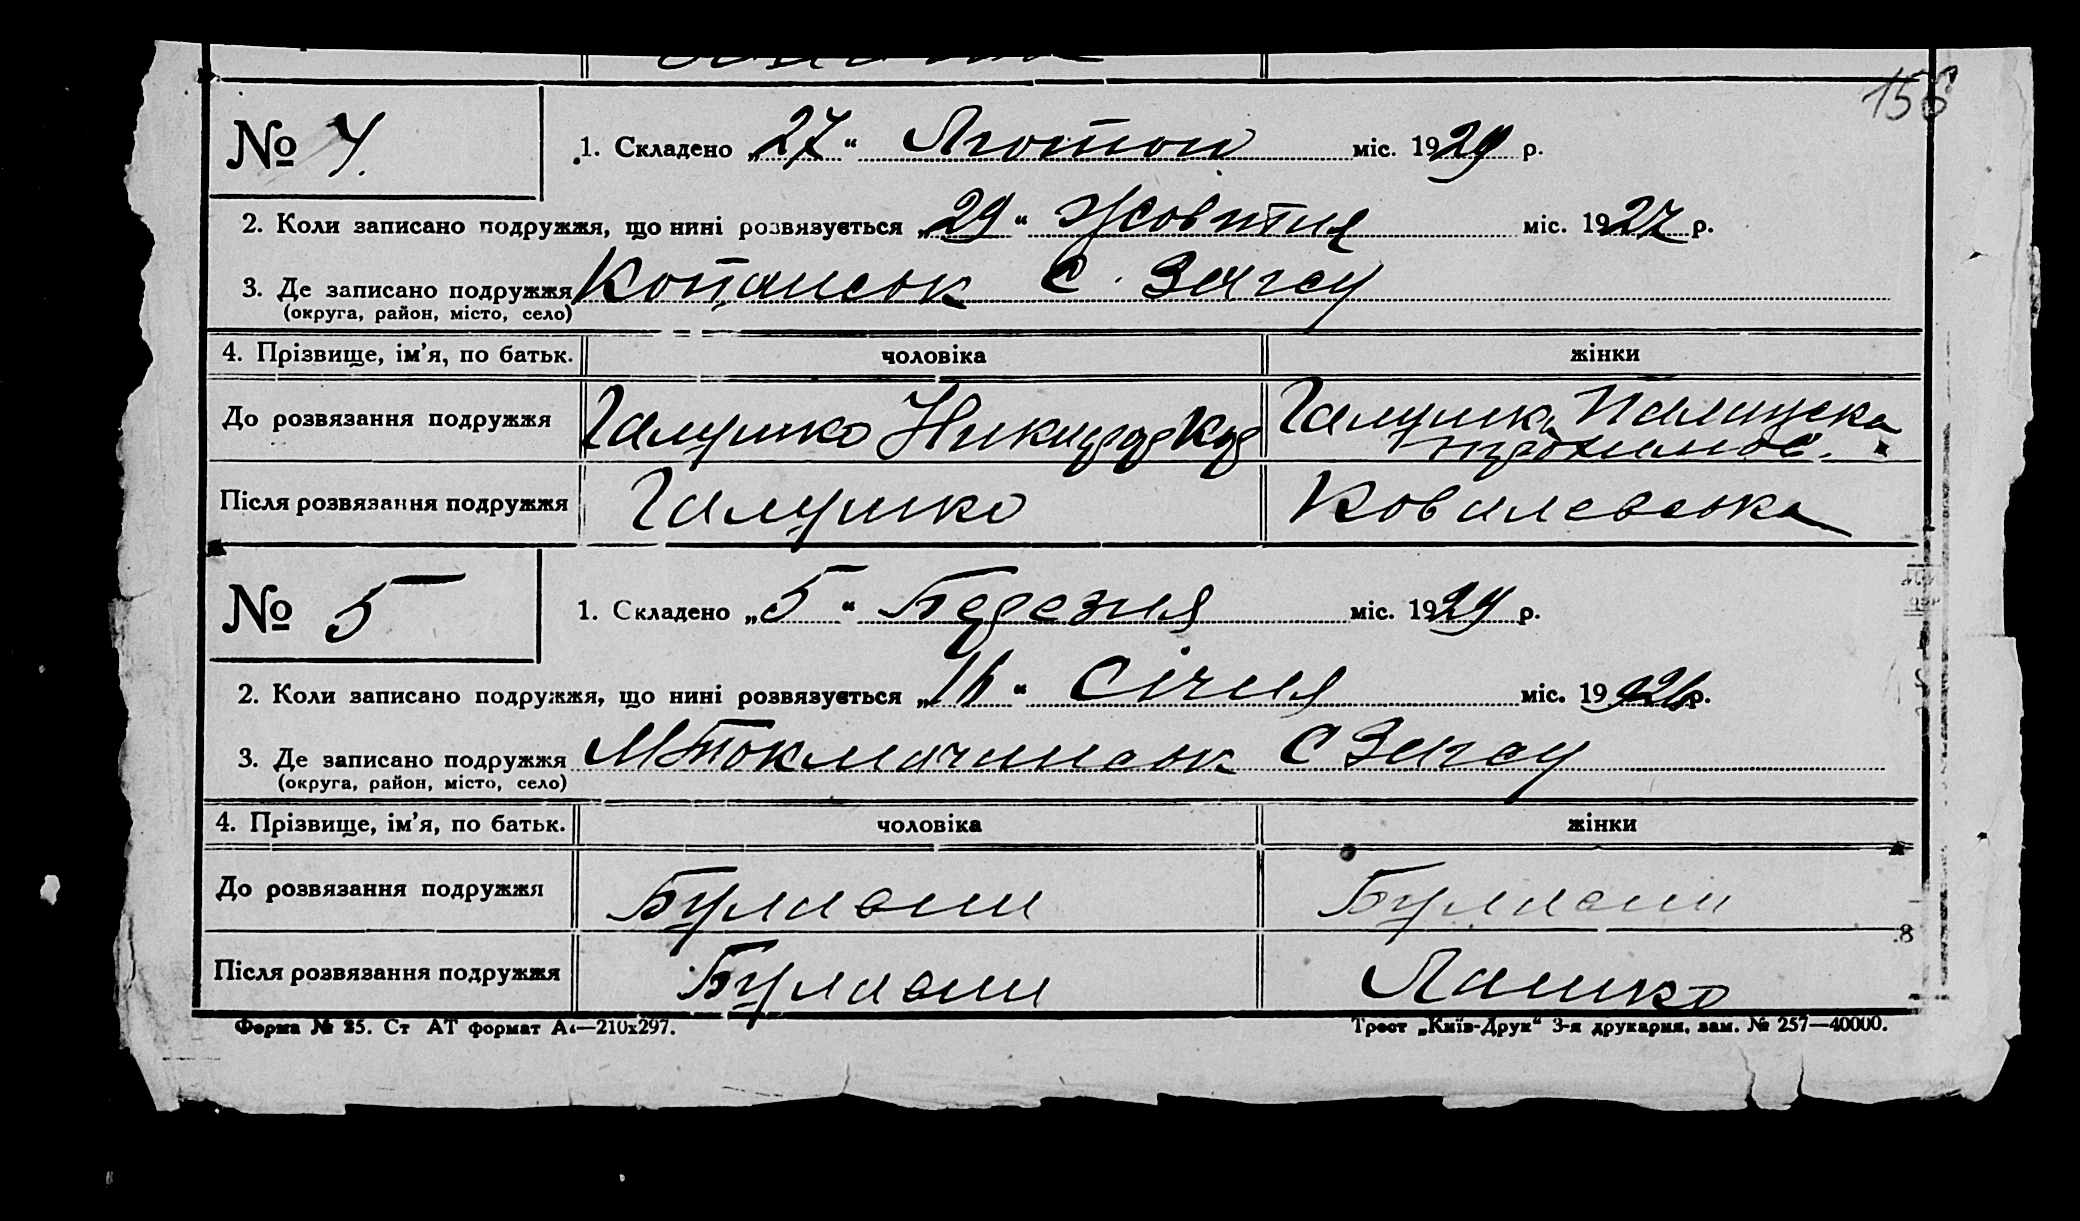 156
№ 4.
1. Складено „27“ Лютого міс. 1929 р.
2. Коли записано подружжя, що нині розвязується „29“ Жовтня міс. 1927 р.
3. Де записано подружжя Копанськ С. Загсу
(округа, район, місто, село)
4. Прізвище, ім’я, по батьк. чоловіка жінки
До розвязання подружжя Галушко Галушко
Після розвязання подружжя Галушко Ковалевська
№ 5
1. Складено „5“ Березня міс. 1929 р.
2. Коли записано подружжя, що нині розвязується „16“ Січня міс. 1926 р.
3. Де записано подружжя МТокмачанськ С Загсу
(округа, район, місто, село)
4. Прізвище, ім’я, по батьк. чоловіка жінки
До розвязання подружжя
Після розвязання подружжя Лашко
Форма № 25. Ст АТ формат А4—210х297. Трест „Київ-Друк“ 3-я друкарня, зам. № 257—40000.